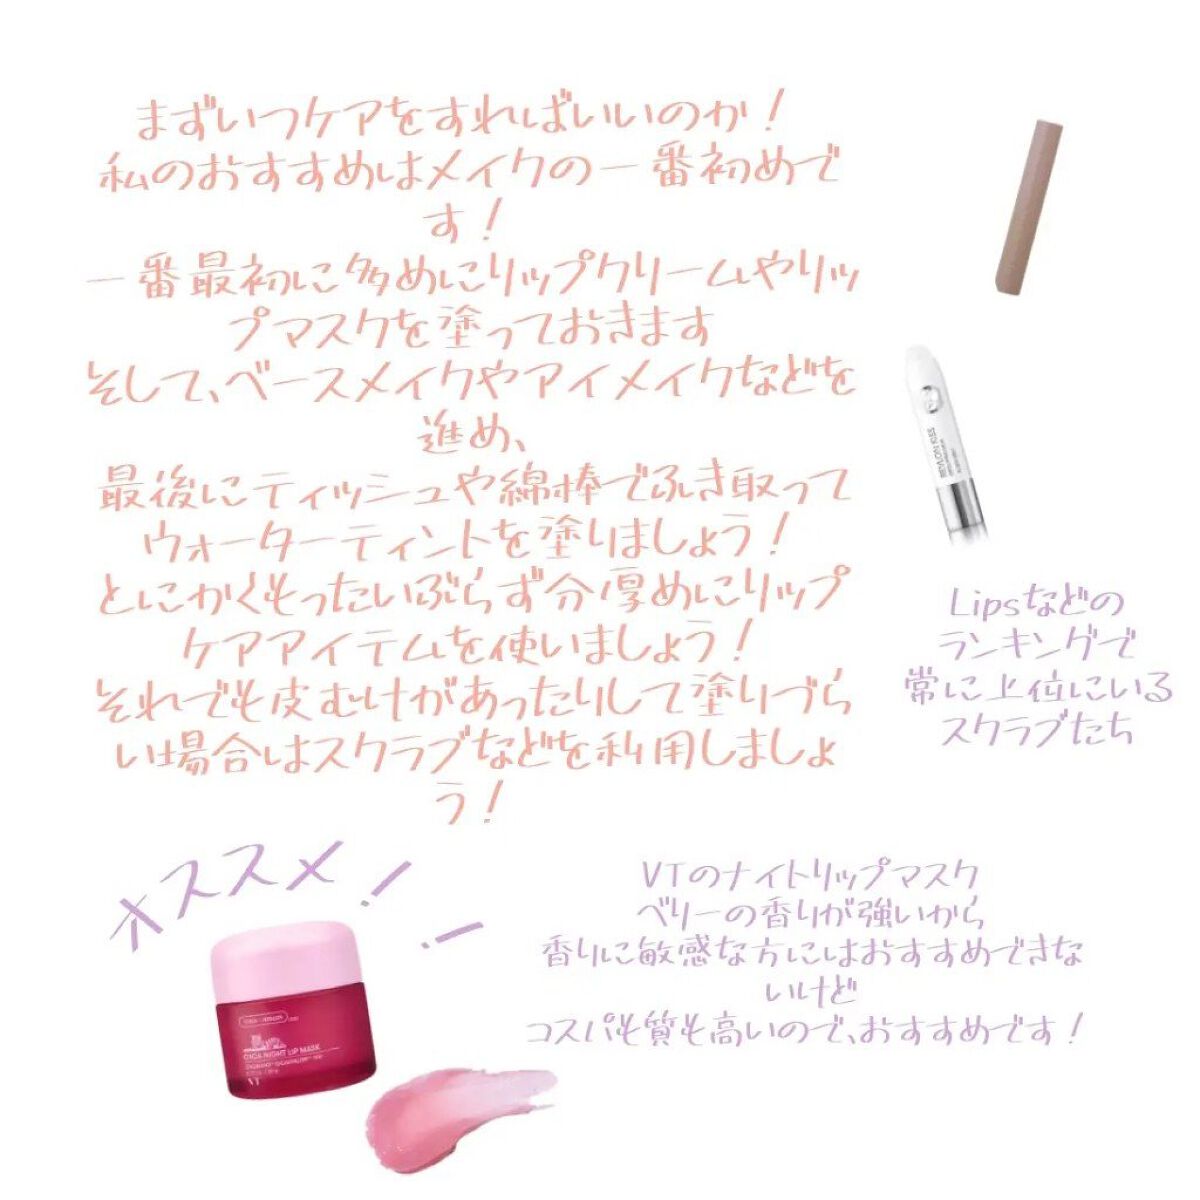 まずいつケアをすればいいのか！
私のおすすめはメイクの一番初めで
す！
一番最初に多めにリップクリームやリッ
プマスクを塗っておきます
そして、ベースメイクやアイメイクなどを
進め、
最後にティッシュや綿棒でふき取って
ウォーターティントを塗りましょう！
とにかくもったいぶらず分厚めにリップ
ケアアイテムを使いましょう！
それでも皮むけがあったりして塗りづら
い場合はスクラブなどを利用しましょ
う！
REVLON KISS
Lipsなどの
ランキングで
常に上位にいる
スクラブたち
オススメ！
CICA NIGHT LIP MASK
VT
VTのナイトリップマスク
ベリーの香りが強いから
香りに敏感な方にはおすすめできな
いけど
コスパも質も高いので、おすすめです！